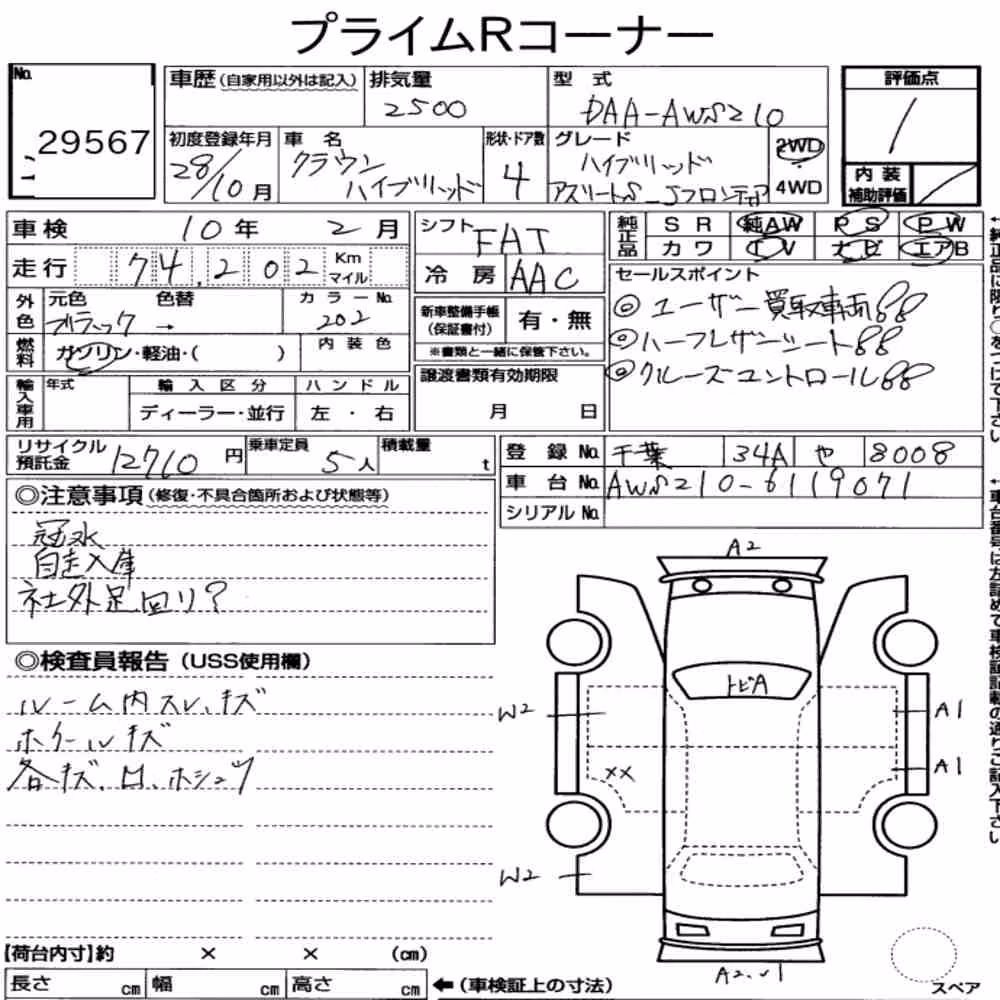 プライムRコーナー
No.
29567
車歴(自家用以外は記入)
排気量
2500
型 式
DAA-AWS210
評価点
1
初度登録年月
28/10月
車 名
クラウン
ハイブリッド
形状・ドア数
4
グレード
ハイブリッド
アスリートS_Jフロンティア
2WD
4WD
内 装
補助評価
車検 10年 2月
シフト FAT
純正品
SR 純AW PS PW
カワ TV ナビ エアB
走行 74,202 Km マイル
冷 房 AAC
セールスポイント
◎ユーザー買取車両
◎ハーフレザーシート
◎クルーズコントロール
外色
元色
ブラック
色替
→
カラーNo.
202
新車整備手帳
(保証書付)
有・無
※書類と一緒に保管下さい。
燃料
ガソリン・軽油・( )
内 装 色
譲渡書類有効期限
月 日
輸入車用
年式
輸 入 区 分
ディーラー・並行
ハ ン ド ル
左 ・ 右
リサイクル
預託金
12710円
乗車定員
5人
積載量
t
登 録 No. 千葉 34A や 8008
車 台 No. AWS210-6119071
シリアル No.
◎注意事項(修復・不具合箇所および状態等)
冠水
自走入庫
社外足回り?
◎検査員報告(USS使用欄)
ルーム内スレ、キズ
ホイールキズ
各キズ、凹、ホシュウ
A2
トビA
W2
A1
XX
A1
W2
スペア
【荷台内寸】約 × × (cm)
長さ cm 幅 cm 高さ cm ←(車検証上の寸法)